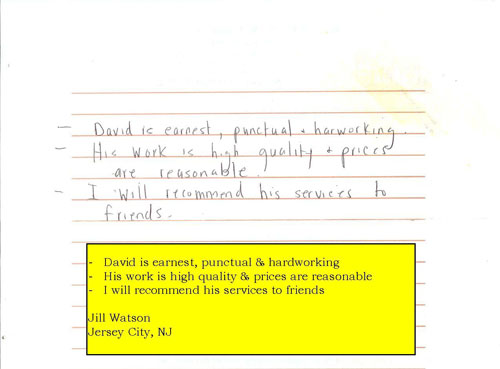 - David is earnest, punctual + harworking.
- His work is high quality + prices
are reasonable.
- I will recommend his services to
friends.
- David is earnest, punctual & hardworking
- His work is high quality & prices are reasonable
- I will recommend his services to friends
Jill Watson
Jersey City, NJ